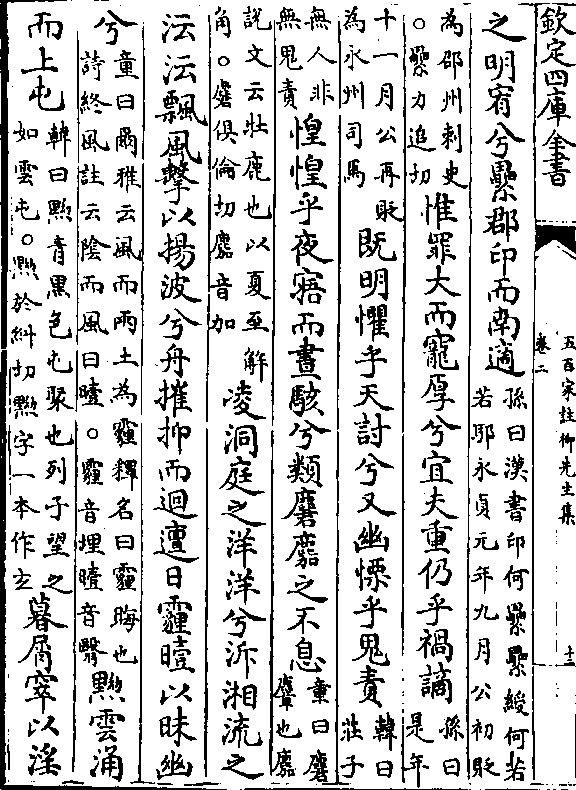 欽定四庫全書
五百家註柳先生集
卷二
十三
之明宥兮纍郡印而南適孫曰漢書印何纍纍綬何若
若耶永貞元年九月公初貶
為邵州刺史
○纍力追切惟罪大而寵厚兮宜夫重仍乎禍謫孫曰
是年
十一月公再貶
為永州司馬既明懼乎天討兮又幽慄乎鬼責韓曰
莊子
無人非
無鬼責惶惶乎夜寤而晝駭兮類麏麚之不息童曰麏
麞也麚
說文云壯鹿也以夏至解
角○麏俱倫切麚音加凌洞庭之洋洋兮泝湘流之
沄沄飄風擊以揚波兮舟摧抑而迴邅日霾曀以昧幽
兮童曰爾雅云風而雨土為霾釋名曰霾晦也
詩終風註云陰而風曰曀○霾音埋曀音翳黝雲涌
而上屯韓曰黝青黑色屯聚也列子望之
如雲屯○黝於糾切黝字一本作玄暮屑窣以淫